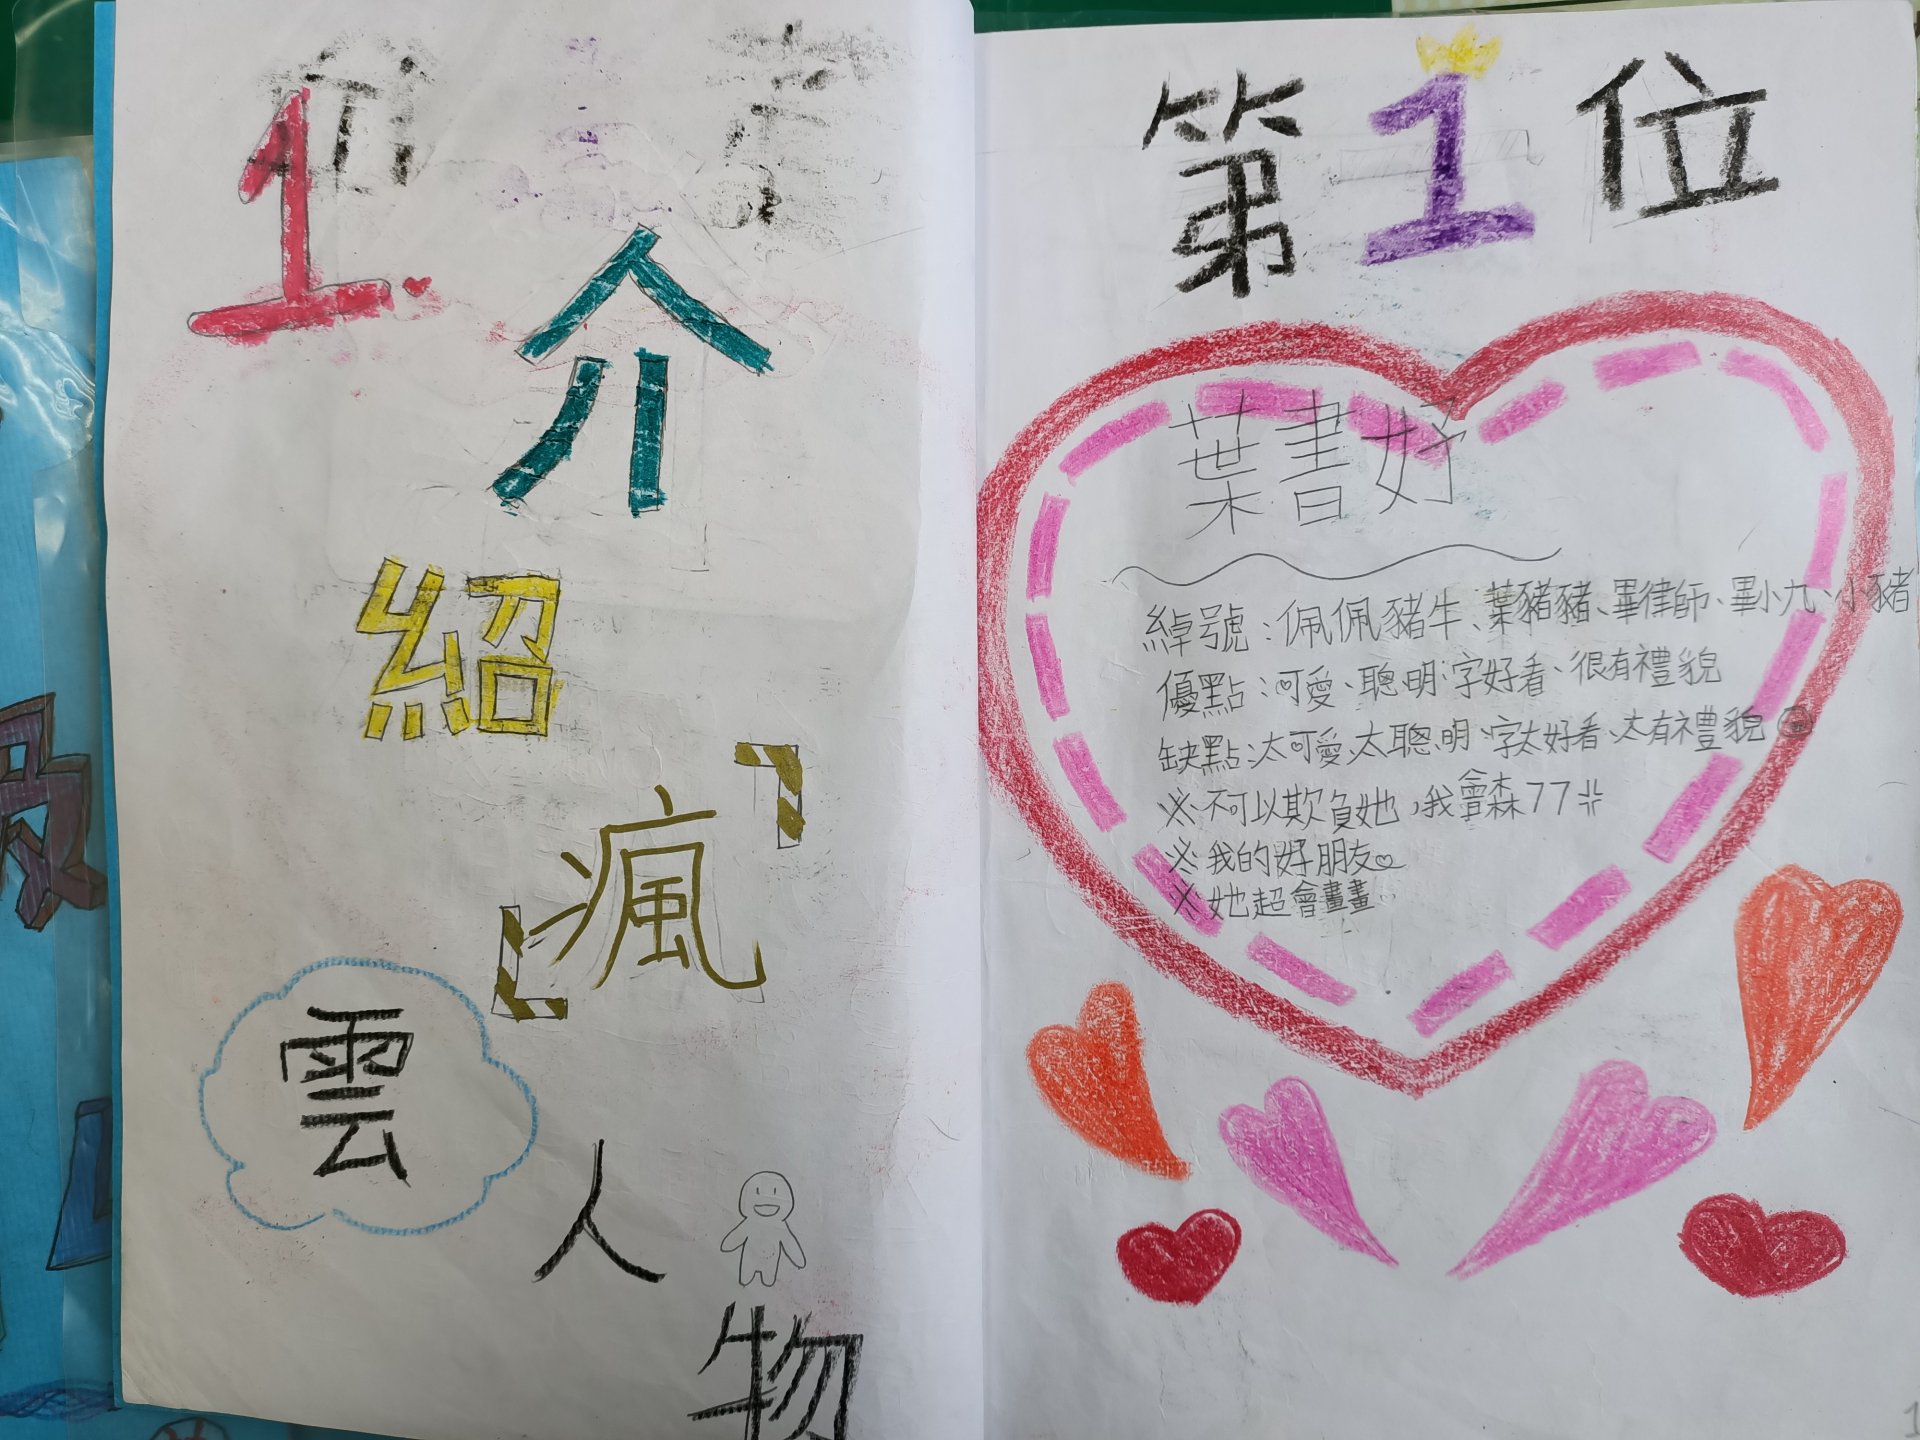 1.
介
紹
「瘋」
雲
人
物
第1位
葉書妤
綽號：佩佩豬牛、葉豬豬、畢律師、畢小九、小豬
優點：可愛、聰明、字好看、很有禮貌
缺點：太可愛、太聰明、字太好看、太有禮貌
※不可以欺負她，我會森77
※我的好朋友♡
※她超會畫畫
1